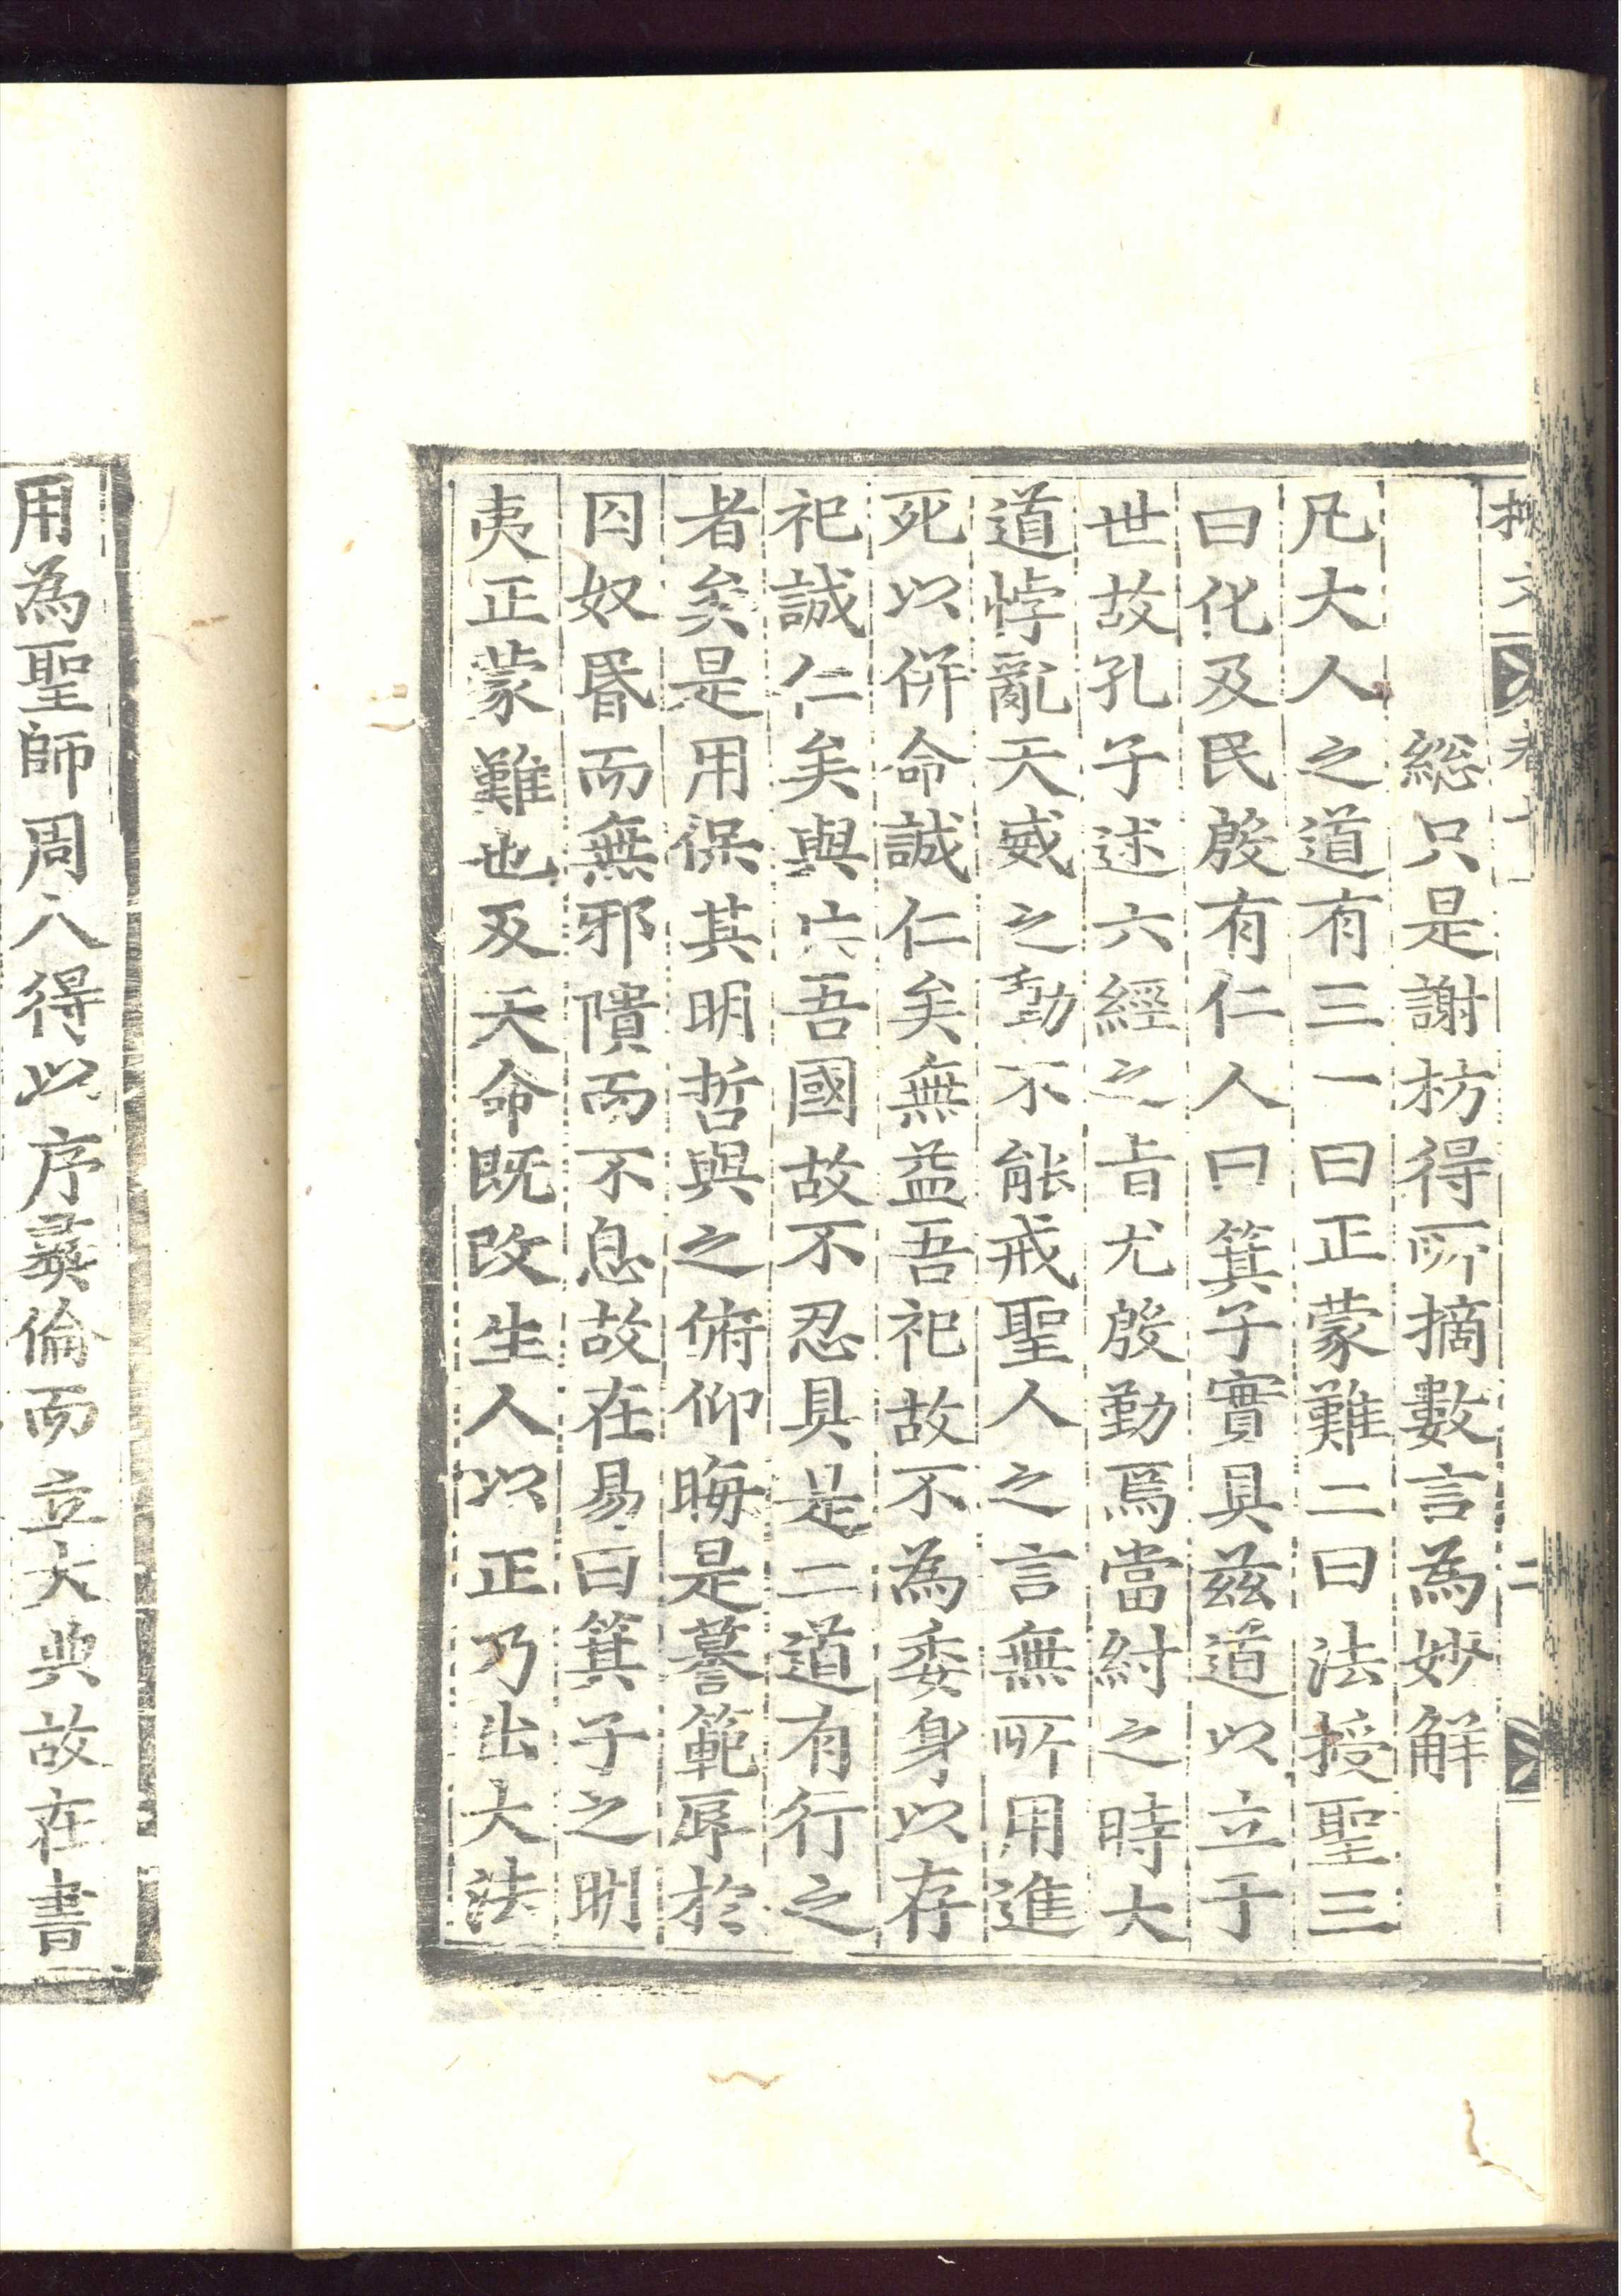 総只是謝枋得所摘數言為妙解
凡大人之道有三一曰正蒙難二曰法授聖三
曰化及民殷有仁人曰箕子實具茲道以立于
世故孔子述六經之旨尤殷勤焉當紂之時大
道悖亂天威之動不能戒聖人之言無所用進
死以併命誠仁矣無益吾祀故不為委身以存
祀誠仁矣與亡吾國故不忍具是二道有行之
者矣是用保其明哲與之俯仰晦是謩範辱於
囚奴昏而無邪隤而不息故在易曰箕子之明
夷正蒙難也及天命既改生人以正乃出大法
用為聖師周人得以序彝倫而立大典故在書